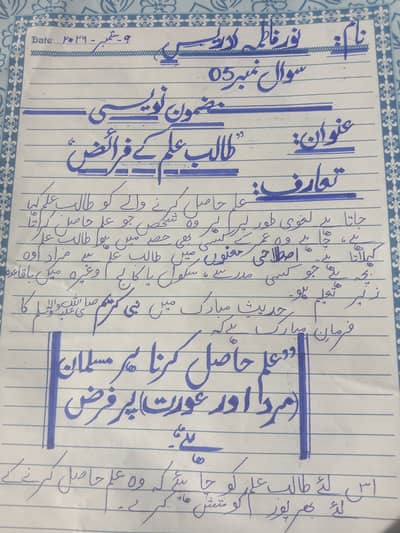 نام: نور فاطمہ ادریس
Date: ۹-ستمبر-۲۰۲۶
سوال نمبر 05
مضمون نویسی
عنوان: "طالب علم کے فرائض"
تعارف:
علم حاصل کرنے والے کو طالب علم کہا
جاتا ہے لغوی طور پر ہر وہ شخص جو علم حاصل کرتا
ہے، چاہے وہ عمر کے کسی بھی حصہ میں ہو طالب علم
کہلاتا ہے۔ اصطلاحی معنوں میں طالب علم سے مراد وہ
بچہ ہے جو کسی مدرسے، سکول یا کالج وغیرہ میں باقاعدہ
زیر تعلیم ہو۔
حدیث مبارک میں نبی کریم صلی اللہ علیہ وسلم کا
فرمان مبارک ہے کہ
"علم حاصل کرنا ہر مسلمان
(مرد اور عورت) پر فرض
ہے"۔
اس لئے طالب علم کو چاہئے کہ وہ علم حاصل کرنے کے
لئے بھرپور کوشش کرے۔